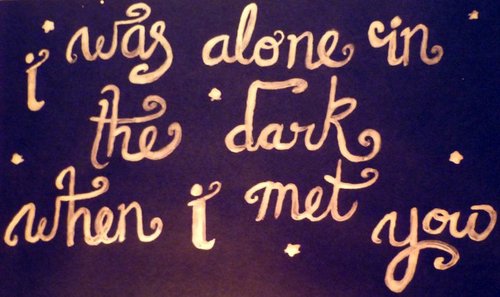 i was alone in
the dark
when i met you